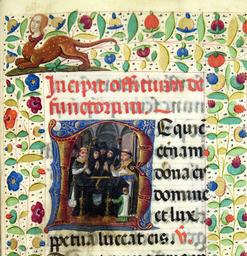 Incipit officium de
functorum
Requie
eternam
dona ei
domine
et lux
ppetua luceat eis.